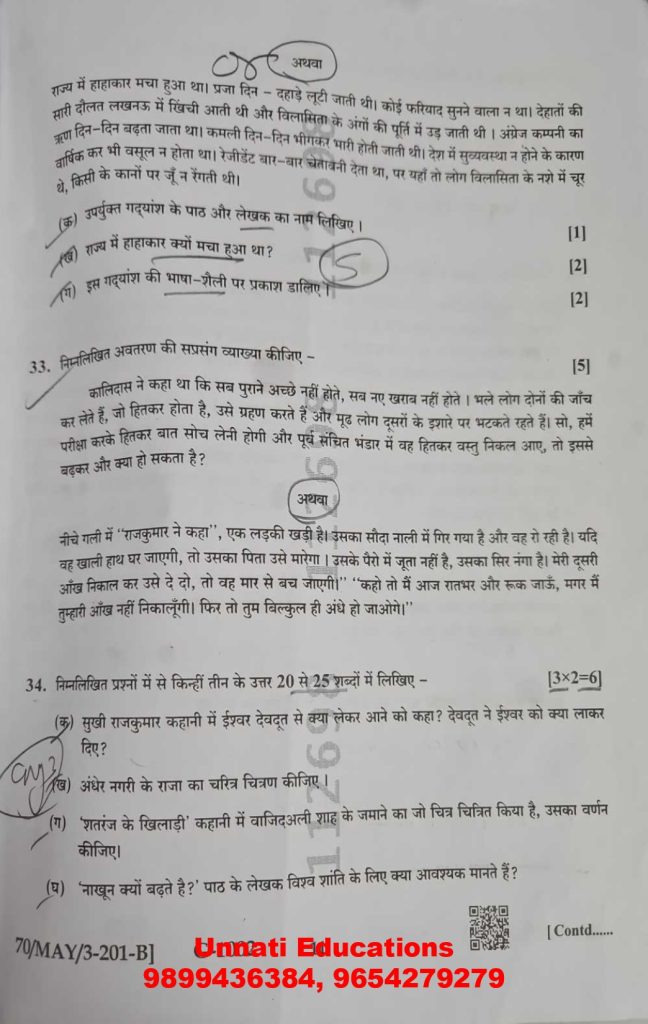 or अथवा
राज्य में हाहाकार मचा हुआ था। प्रजा दिन - दहाड़े लूटी जाती थी। कोई फरियाद सुनने वाला न था। देहातों की
सारी दौलत लखनऊ में खिंची आती थी और विलासिता के अंगों की पूर्ति में उड़ जाती थी । अंग्रेज कम्पनी का
ऋण दिन-दिन बढ़ता जाता था। कमली दिन-दिन भीगकर भारी होती जाती थी। देश में सुव्यवस्था न होने के कारण
वार्षिक कर भी वसूल न होता था। रेजीडेंट बार-बार चेतावनी देता था, पर यहाँ तो लोग विलासिता के नशे में चूर
थे, किसी के कानों पर जूँ न रेंगती थी।
(क) उपर्युक्त गद्यांश के पाठ और लेखक का नाम लिखिए । [1]
(ख) राज्य में हाहाकार क्यों मचा हुआ था? [2]
5
(ग) इस गद्यांश की भाषा-शैली पर प्रकाश डालिए । [2]
33. निम्नलिखित अवतरण की सप्रसंग व्याख्या कीजिए - [5]
कालिदास ने कहा था कि सब पुराने अच्छे नहीं होते, सब नए खराब नहीं होते । भले लोग दोनों की जाँच
कर लेते हैं, जो हितकर होता है, उसे ग्रहण करते हैं और मूढ लोग दूसरों के इशारे पर भटकते रहते हैं। सो, हमें
परीक्षा करके हितकर बात सोच लेनी होगी और पूर्व संचित भंडार में वह हितकर वस्तु निकल आए, तो इससे
बढ़कर और क्या हो सकता है?
अथवा
नीचे गली में "राजकुमार ने कहा", एक लड़की खड़ी है। उसका सौदा नाली में गिर गया है और वह रो रही है। यदि
वह खाली हाथ घर जाएगी, तो उसका पिता उसे मारेगा । उसके पैरो में जूता नहीं है, उसका सिर नंगा है। मेरी दूसरी
आँख निकाल कर उसे दे दो, तो वह मार से बच जाएगी।" "कहो तो मैं आज रातभर और रूक जाऊँ, मगर मैं
तुम्हारी आँख नहीं निकालूँगी। फिर तो तुम बिल्कुल ही अंधे हो जाओगे।"
34. निम्नलिखित प्रश्नों में से किन्हीं तीन के उत्तर 20 से 25 शब्दों में लिखिए - [3×2=6]
(क) सुखी राजकुमार कहानी में ईश्वर देवदूत से क्या लेकर आने को कहा? देवदूत ने ईश्वर को क्या लाकर
दिए?
(ख) अंधेर नगरी के राजा का चरित्र चित्रण कीजिए ।
(ग) 'शतरंज के खिलाड़ी' कहानी में वाजिदअली शाह के जमाने का जो चित्र चित्रित किया है, उसका वर्णन
कीजिए।
(घ) 'नाखून क्यों बढ़ते है?' पाठ के लेखक विश्व शांति के लिए क्या आवश्यक मानते हैं?
[ Contd......
70/MAY/3-201-B]
Unnati Educations
9899436384, 9654279279